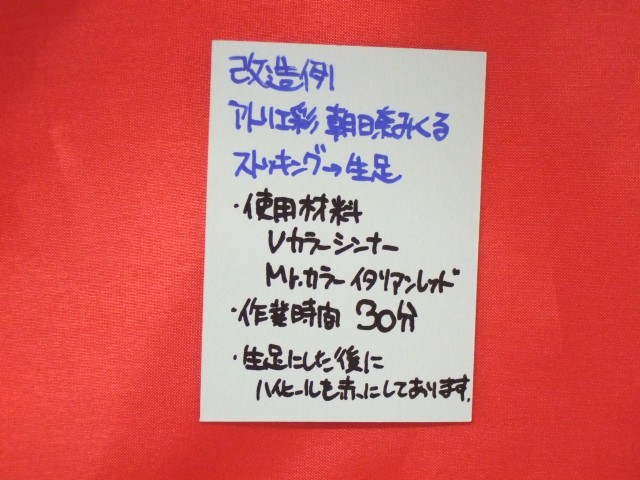 改造例1
アトリエ彩 朝日奈みくる
ストッキング→生足
・使用材料
Vカラーシンナー
Mr.カラー イタリアンレッド
・作業時間 30分
・生足にした後に
ハイヒールを赤にしております。